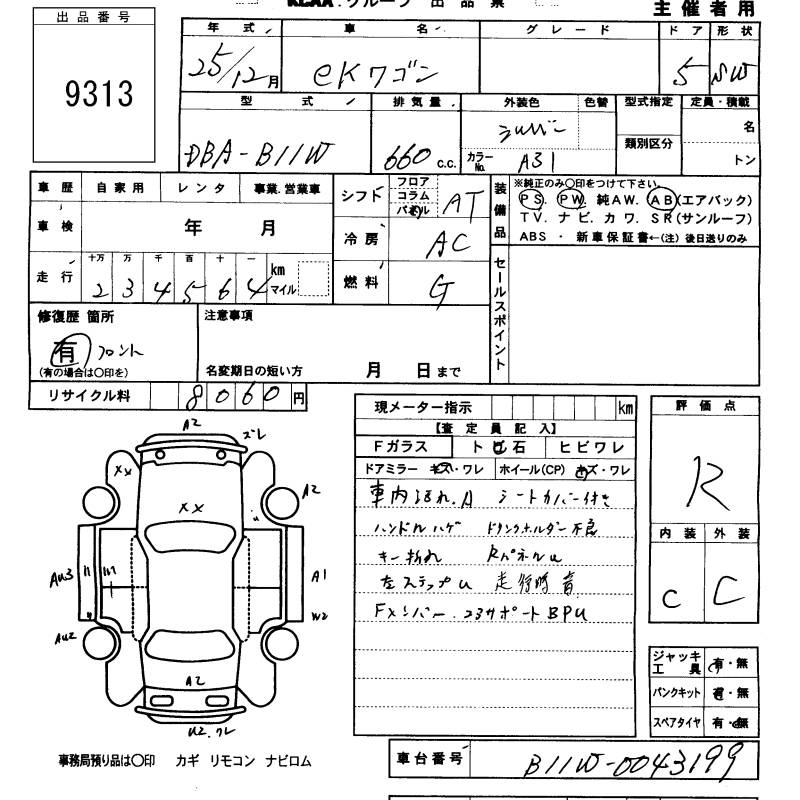 KCAA グループ 出品票
主催者用
出品番号
9313
年式 車名 グレード ドア 形状
25/12月 eKワゴン 5 SW
型式 排気量 外装色 色替 型式指定 定員・積載
DBA-B11W 660c.c. シルバー 類別区分 名
カラーNo. A31 トン
車歴 自家用 レンタ 事業.営業車
車検 年 月
走行 十万 万 千 百 十 一 km マイル
2 3 4 5 6 4
シフト フロア コラム パネル AT
冷房 AC
燃料 G
装備品 ※純正のみ○印をつけて下さい。
PS. PW. 純AW. AB(エアバック)
TV. ナビ. カワ. SR(サンルーフ)
ABS ・ 新車保証書←(注)後日送りのみ
セールスポイント
修復歴 箇所 注意事項
有 フロント
(有の場合は○印を) 名変期日の短い方 月 日まで
リサイクル料 8060円
現メーター指示 km
【査定員記入】
Fガラス トビ石 ヒビワレ
ドアミラー キズ・ワレ ホイール(CP) キズ・ワレ
車内汚れ.A シートカバー付き
ハンドルハゲ ドリンクホルダー不良
キー折れ RパネルU
左ステップU 走行時音
Fメンバー.コアサポートBPU
評価点
R
内装 外装
C C
ジャッキ工具 有・無
パンクキット 有・無
スペアタイヤ 有・無
A2 ズレ
XX A2
XX
AU3 A1
W2
AU2
A2
U2.ワレ
事務局預り品は○印 カギ リモコン ナビロム
車台番号 B11W-0043199